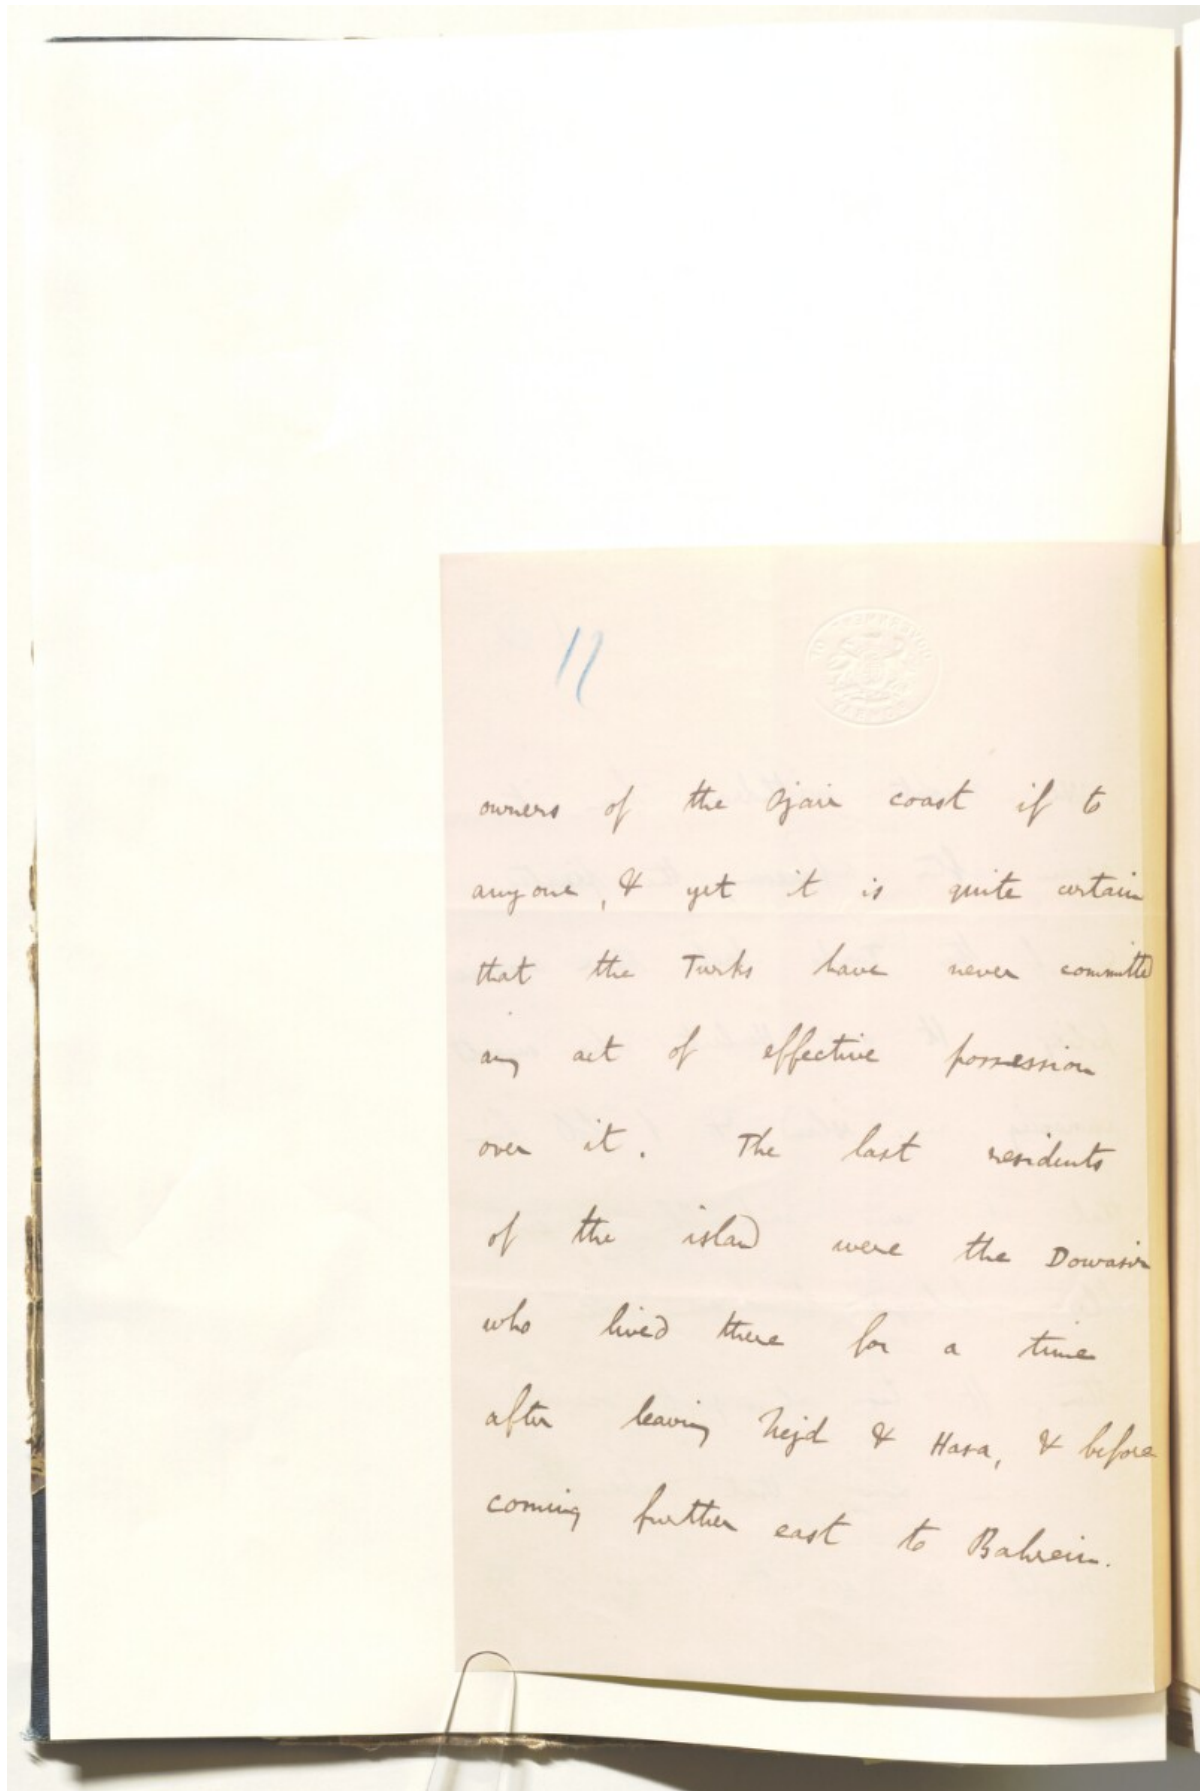 11
owners of the Ojair coast if to
anyone, & yet it is quite certain
that the Turks have never committed
any act of effective possession
over it. The last residents
of the island were the Dowasir
who lived there for a time
after leaving Nejd & Hasa, & before
coming further east to Bahrein.